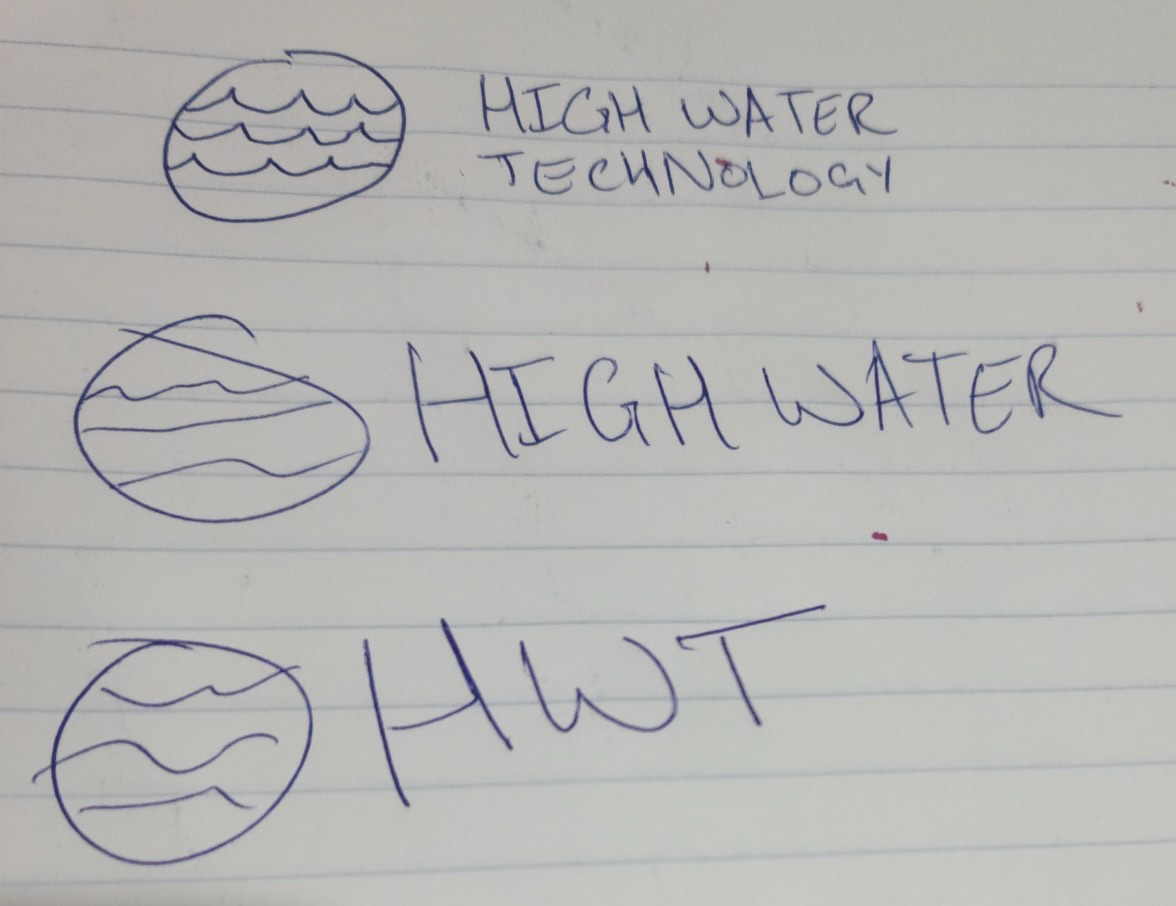 HIGH WATER
TECHNOLOGY
HIGH WATER
HWT